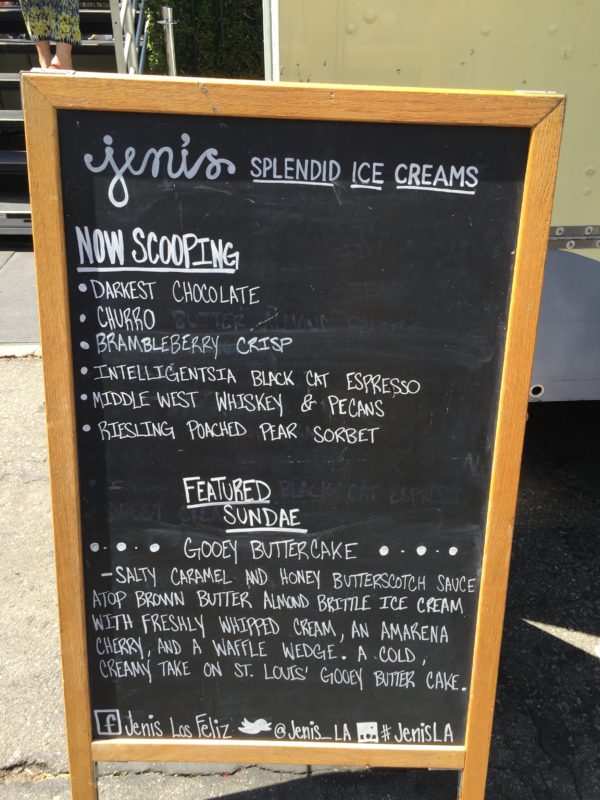 jenis SPLENDID ICE CREAMS
NOW SCOOPING
• DARKEST CHOCOLATE
• CHURRO BUTTER ALMOND BRITTLE
• BRAMBLEBERRY CRISP
• INTELLIGENTSIA BLACK CAT ESPRESSO
• MIDDLE WEST WHISKEY & PECANS
• RIESLING POACHED PEAR SORBET
FEATURED BLACK CAT ESPRESSO
SUNDAE
GOOEY BUTTERCAKE
- SALTY CARAMEL AND HONEY BUTTERSCOTCH SAUCE
ATOP BROWN BUTTER ALMOND BRITTLE ICE CREAM
WITH FRESHLY WHIPPED CREAM, AN AMARENA
CHERRY, AND A WAFFLE WEDGE. A COLD,
CREAMY TAKE ON ST. LOUIS' GOOEY BUTTER CAKE.
f Jenis Los Feliz @Jenis_LA #JenisLA